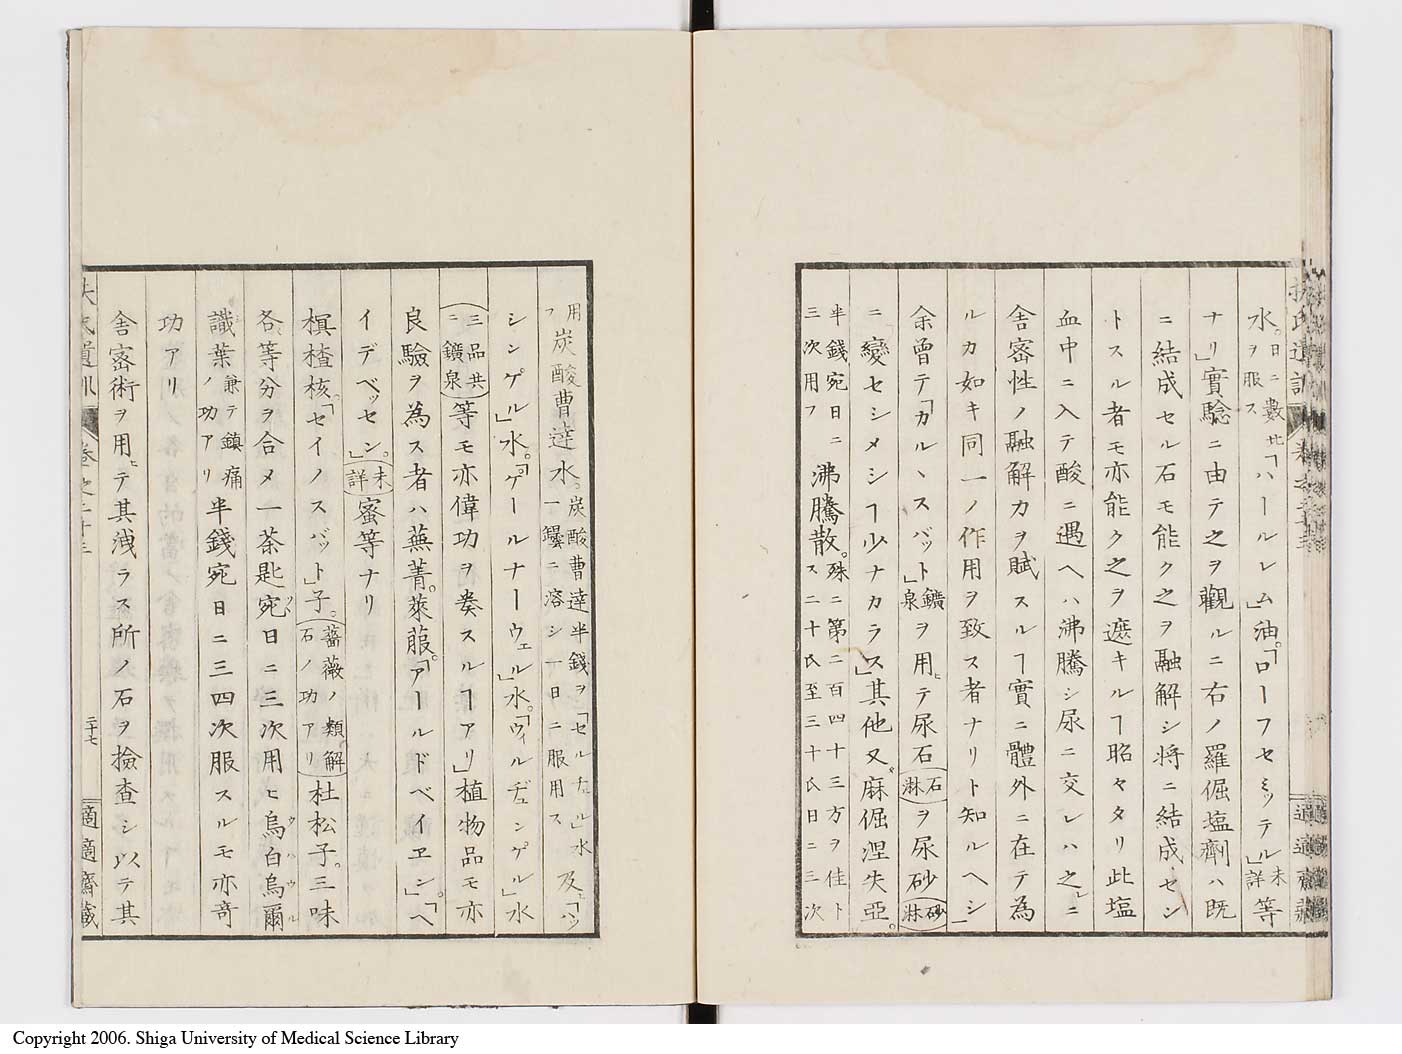 扶氏遺訓 卷之二十三 適適齋藏
水。日ニ數 ヲ服ス「ハールレム」油。「ローフセミッテル」未詳等
ナリ」實驗ニ由テ之ヲ觀ルニ右ノ羅倔塩劑ハ既
ニ結成セル石モ能ク之ヲ融解シ将ニ結成セン
トスル者モ亦能ク之ヲ遮キルヿ昭々タリ此塩
血中ニ入テ酸ニ遇ヘハ沸騰シ尿ニ交レハ之ニ
舎密性ノ融解力ヲ賦スルヿ實ニ體外ニ在テ為
ルカ如キ同一ノ作用ヲ致ス者ナリト知ルヘシ
余曽テ「カルヽスバット」鑛泉ヲ用ヒテ尿石(石淋)ヲ尿砂(砂淋)
ニ變セシメシヿ少ナカラス」其他又麻倔涅失亞。
半錢宛日ニ三次用フ沸騰散。殊ニ第二百四十三方ヲ佳トス二十氏至三十氏日ニ三次
用フ炭酸曹達水。炭酸曹達半錢ヲ一鑵ニ溶シ一日ニ服用ス「セルチェル」水及ヒ「ハッ
シンゲル」水。「ゲールナーウェル」水。「ウィルヂュンゲル」水
(三品共ニ鑛泉)等モ亦偉功ヲ奏スルヿアリ」植物品モ亦
良驗ヲ為ス者ハ蕪菁。萊菔。「アールドベイヱン」。「ヘ
イデベッセン」。(未詳)蜜等ナリ
榠楂核。「セイノスバット」子。(薔薇ノ類解石ノ功アリ)杜松子。三味
各等分ヲ合メ一茶匙宛日ニ三次用ヒ烏白烏爾
識葉兼テ鎮痛ノ功アリ半錢宛日ニ三四次服スルモ亦竒
功アリ
舎密術ヲ用ヒテ其洩ラス所ノ石ヲ撿査シ以テ其
扶氏遺訓 卷之二十三 二十七 適適齋藏
Copyright 2006. Shiga University of Medical Science Library